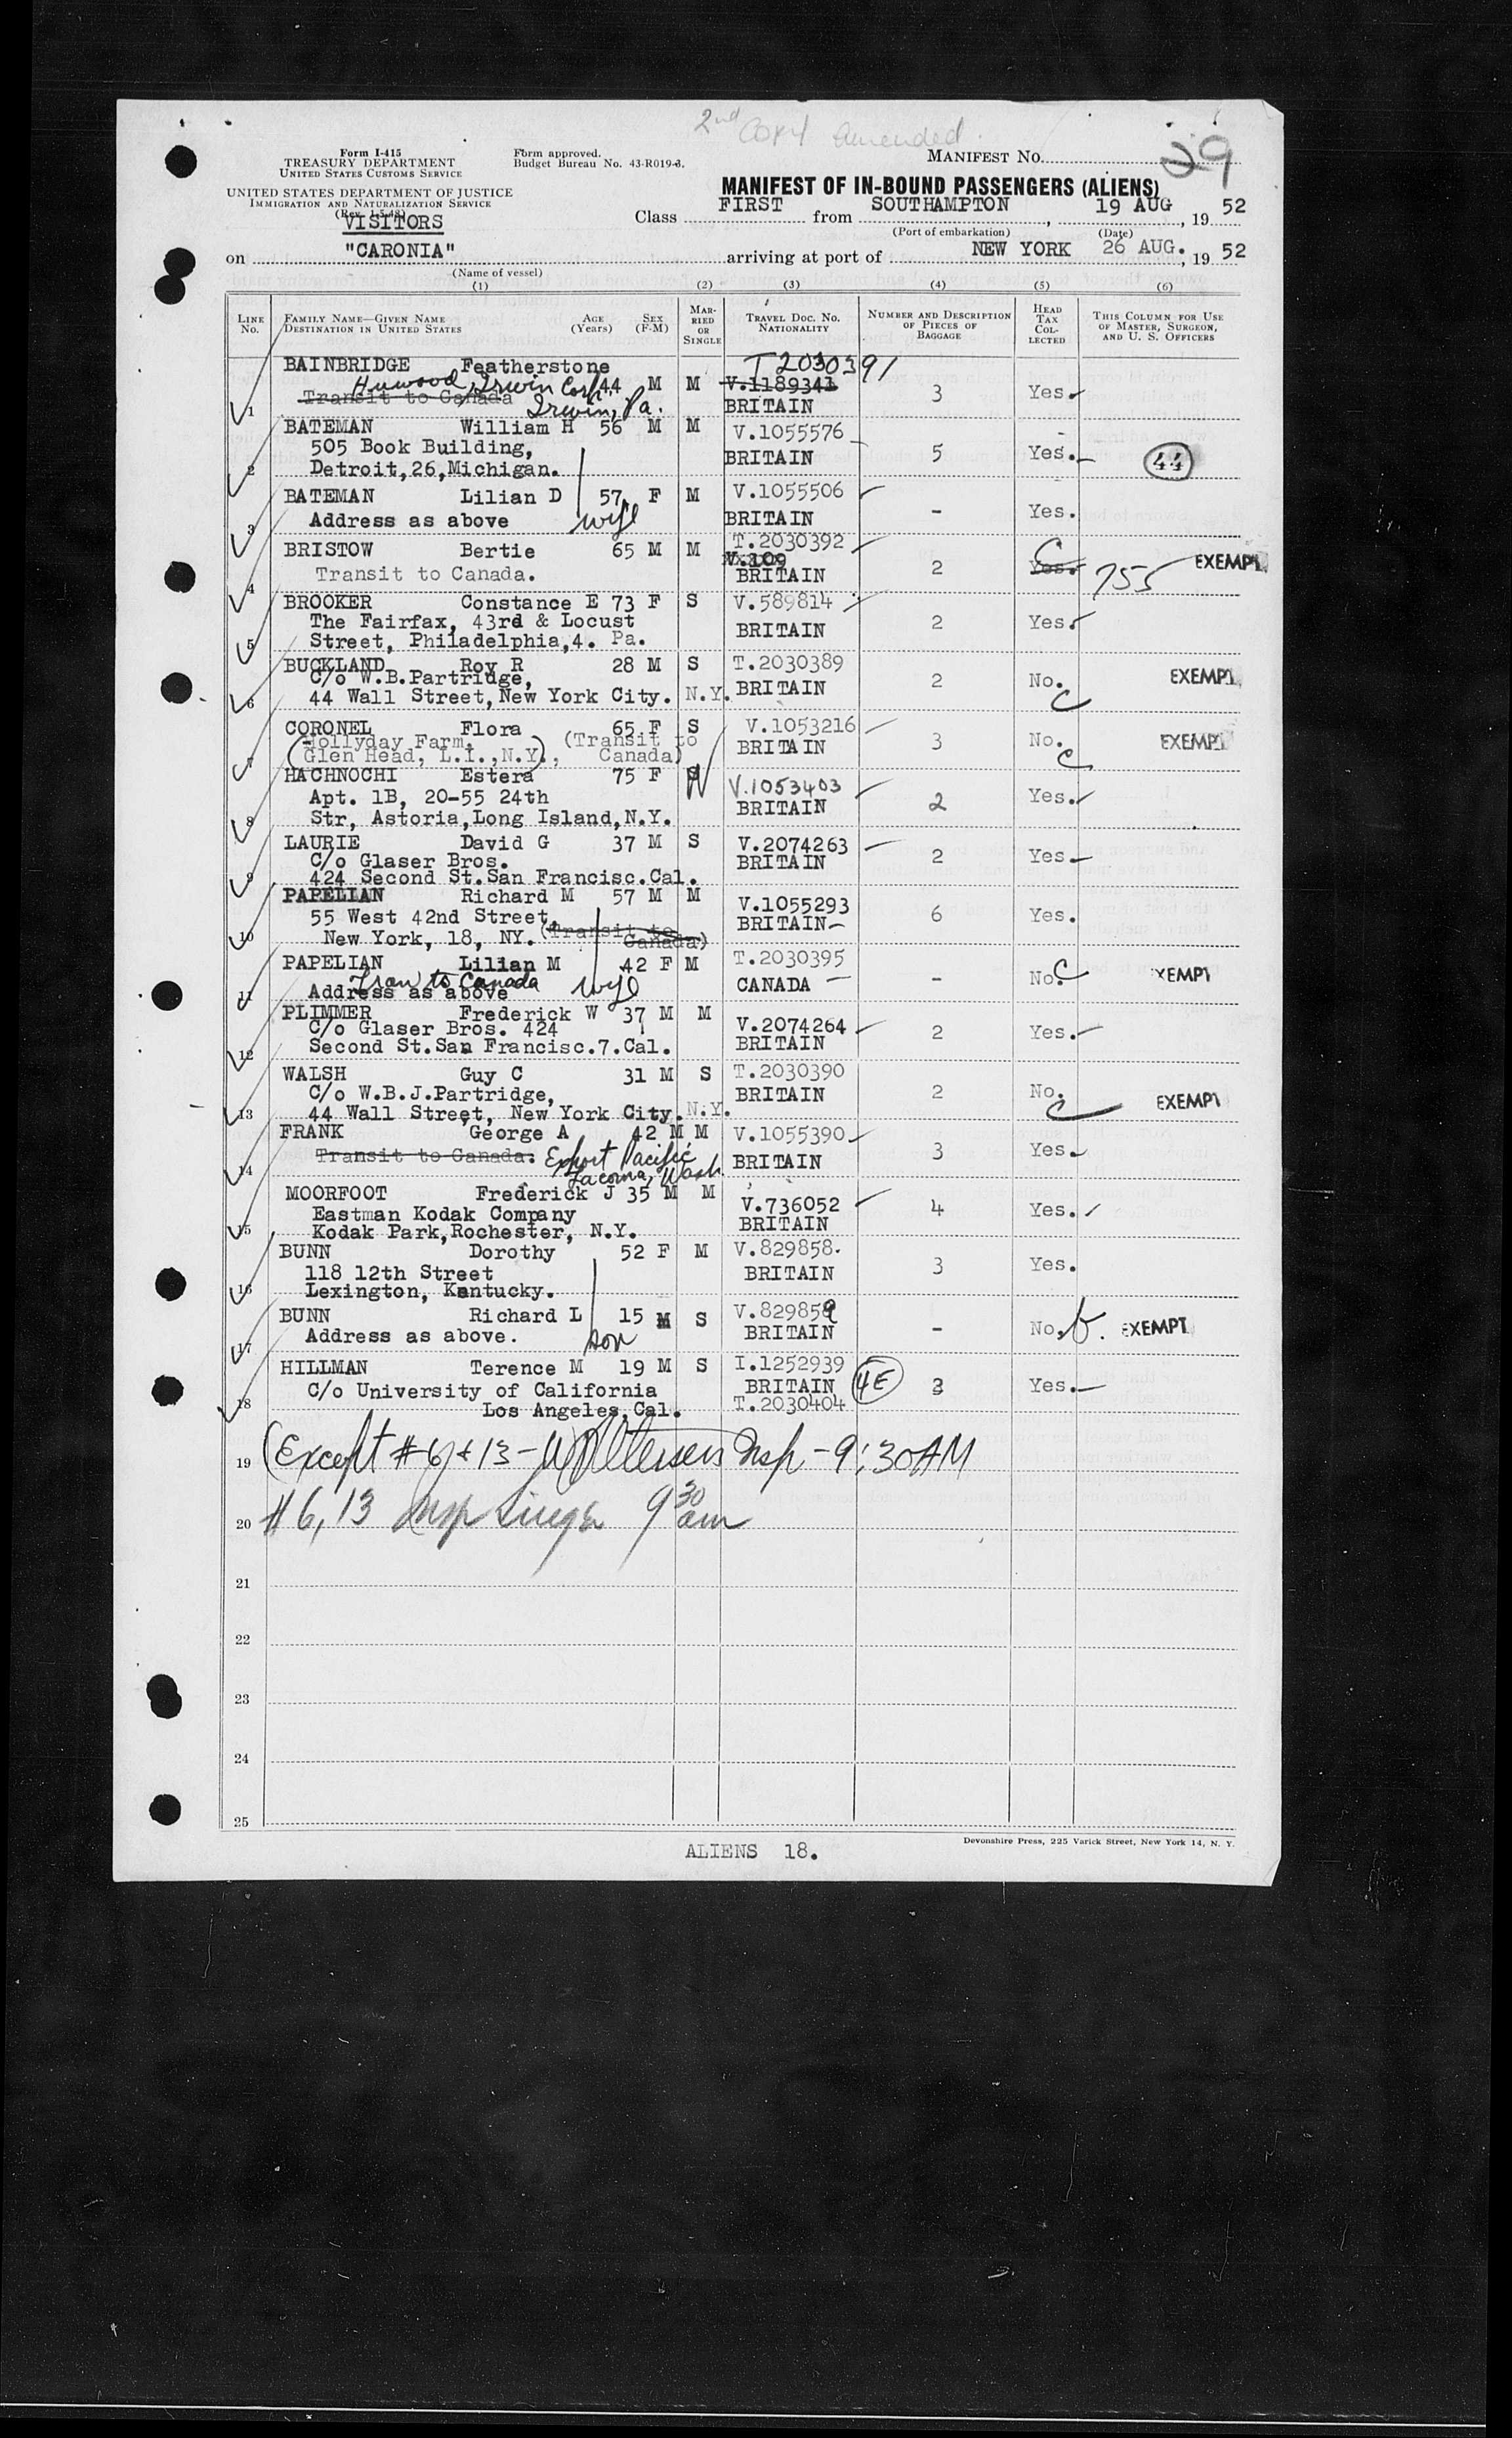 2nd Copy amended.
Form I-415
TREASURY DEPARTMENT
UNITED STATES CUSTOMS SERVICE
Form approved.
Budget Bureau No. 43-R019-3.
MANIFEST No. 29
UNITED STATES DEPARTMENT OF JUSTICE
IMMIGRATION AND NATURALIZATION SERVICE
(Rev. 1-5-48)
VISITORS
MANIFEST OF IN-BOUND PASSENGERS (ALIENS)
Class FIRST from SOUTHAMPTON, 19 AUG, 19 52
(Port of embarkation) (Date)
on "CARONIA" arriving at port of NEW YORK 26 AUG., 19 52
(Name of vessel)
(1) (2) (3) (4) (5) (6)
LINE No. FAMILY NAME—GIVEN NAME DESTINATION IN UNITED STATES AGE (Years) SEX (F-M) MARRIED OR SINGLE TRAVEL DOC. NO. NATIONALITY NUMBER AND DESCRIPTION OF PIECES OF BAGGAGE HEAD TAX COLLECTED THIS COLUMN FOR USE OF MASTER, SURGEON, AND U. S. OFFICERS
BAINBRIDGE Featherstone T2030391
Huwood Irwin Corp. 44 M M V.1189341 3 Yes.
1 Transit to Canada Irwin, Pa. BRITAIN
BATEMAN William H 56 M M V.1055576
505 Book Building, BRITAIN 5 Yes. 44
2 Detroit,26,Michigan.
BATEMAN Lilian D 57 F M V.1055506
3 Address as above wife BRITAIN - Yes.
BRISTOW Bertie 65 M M T.2030392 C EXEMPT
V.109
4 Transit to Canada. BRITAIN 2 Yes. 755
BROOKER Constance E 73 F S V.589814
The Fairfax, 43rd & Locust BRITAIN 2 Yes.
5 Street, Philadelphia,4. Pa.
BUCKLAND Roy R 28 M S T.2030389
C/o W.B.Partridge, 2 No. EXEMPT
6 44 Wall Street,New York City. N.Y. BRITAIN C
CORONEL Flora 65 F S V.1053216
(Hollyday Farm, (Transit to BRITAIN 3 No. EXEMPT
7 Glen Head, L.I.,N.Y.), Canada) C
HACHNOCHI Estera 75 F S W V.1053403
Apt. 1B, 20-55 24th BRITAIN 2 Yes.
8 Str, Astoria,Long Island,N.Y.
LAURIE David G 37 M S V.2074263
C/o Glaser Bros. BRITAIN 2 Yes.
9 424 Second St.San Francisc.Cal.
PAPELIAN Richard M 57 M M V.1055293
55 West 42nd Street, BRITAIN 6 Yes.
10 New York, 18, NY. (Transit to Canada)
PAPELIAN Lilian M 42 F M T.2030395
Tran to Canada wife CANADA - No. C EXEMPT
11 Address as above
PLIMMER Frederick W 37 M M V.2074264
C/o Glaser Bros. 424 BRITAIN 2 Yes.
12 Second St.San Francisc.7.Cal.
WALSH Guy C 31 M S T.2030390
C/o W.B.J.Partridge, BRITAIN 2 No. EXEMPT
13 44 Wall Street, New York City. N.Y. C
FRANK George A 42 M M V.1055390
14 Transit to Canada. Export Pacific BRITAIN 3 Yes.
Tacoma, Wash.
MOORFOOT Frederick J 35 M M V.736052
Eastman Kodak Company BRITAIN 4 Yes.
15 Kodak Park,Rochester, N.Y.
BUNN Dorothy 52 F M V.829858.
118 12th Street BRITAIN 3 Yes.
16 Lexington, Kentucky.
BUNN Richard L 15 M S V.829859
17 Address as above. son BRITAIN - No. b. EXEMPT
HILLMAN Terence M 19 M S I.1252939
C/o University of California BRITAIN 4E 3 Yes.
18 Los Angeles,Cal. T.2030404
19 (Except #6 & 13 - Insp - 9:30AM
20 #6,13 Insp 9 30 am
21
22
23
24
25
ALIENS 18.
Devonshire Press, 225 Varick Street, New York 14, N. Y.